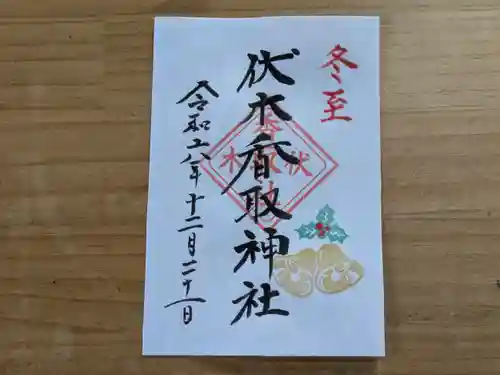 冬至
伏木香取神社
令和六年十二月二十一日
伏木
香取神社